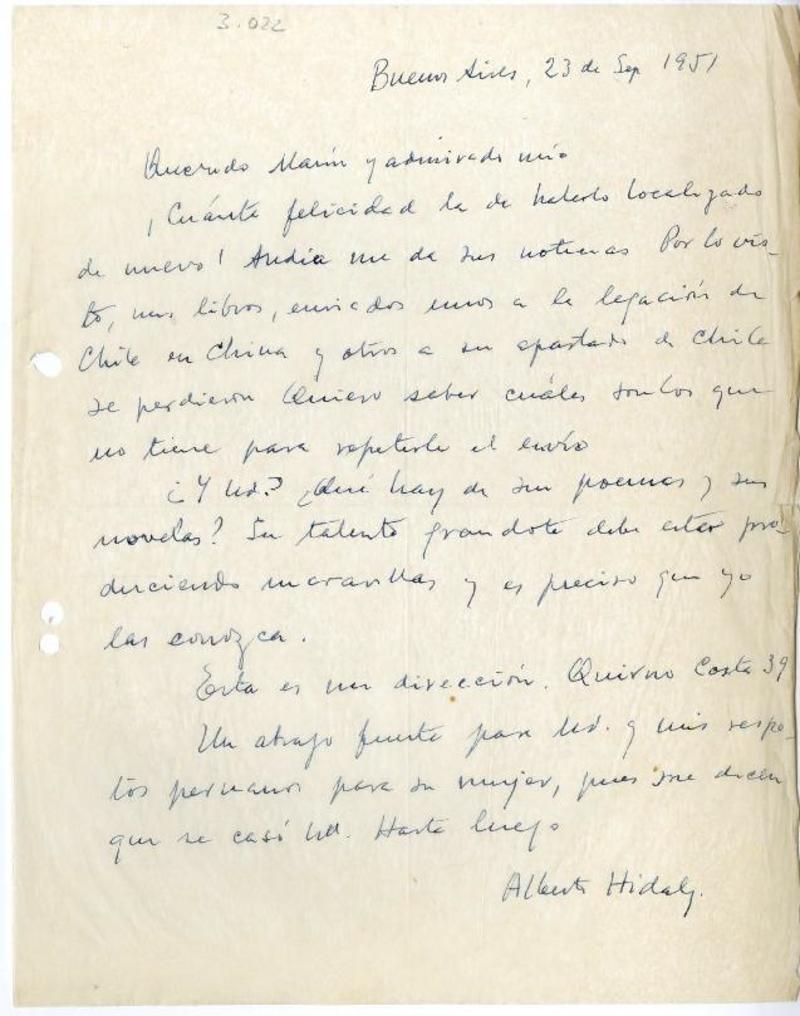 3.022
Buenos Aires, 23 de Sep 1951
Querido Marín y admirado mío
¡Cuánta felicidad la de haberlo localizado
de nuevo! Andia me da sus noticias Por lo vis-
to, mis libros, enviados unos a la legación de
Chile en China y otros a su apartado de Chile
se perdieron Quiero saber cuáles son los que
no tiene para repetirle el envío
¿Y Ud.? ¿Qué hay de sus poemas y sus
novelas? Su talento grandote debe estar pro-
duciendo maravillas y es preciso que yo
las conozca.
Esta es mi dirección. Quirno Costa 39
Un abrazo fuerte para Ud. y mis respe-
tos peruanos para su mujer, pues me dicen
que se casó Ud. Hasta luego
Alberto Hidalgo.